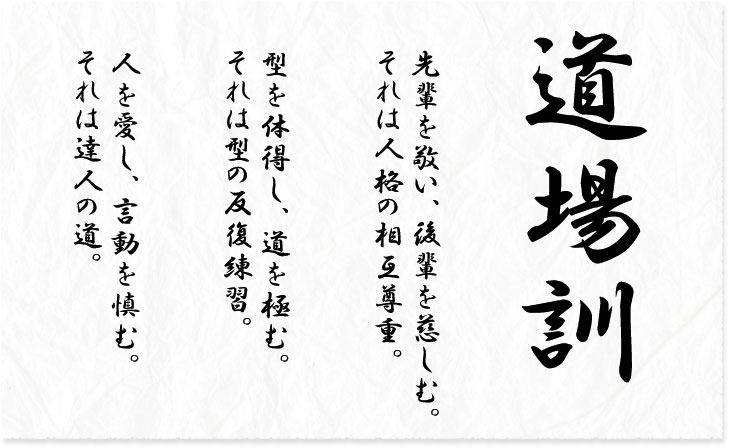 道場訓
先輩を敬い、後輩を慈しむ。
それは人格の相互尊重。
型を体得し、道を極む。
それは型の反復練習。
人を愛し、言動を慎む。
それは達人の道。